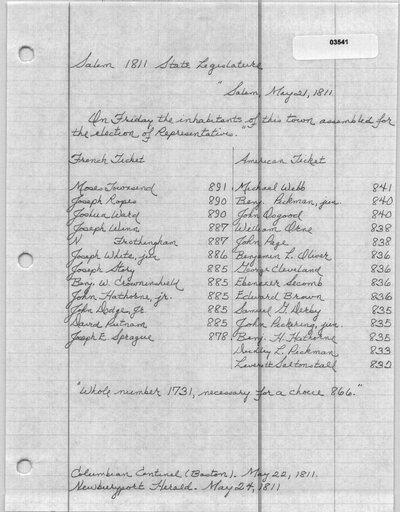 03541
Salem 1811 State Legislature
"Salem, May 21, 1811
On Friday the inhabitants of this town assembled for
the election of Representatives."
French Ticket American Ticket
Moses Townsend 891 Michael Webb 841
Joseph Ropes 890 Benj. Pickman, jun. 840
Joshua Ward 890 John Osgood 840
Joseph Winn 887 William Orne 838
N Frothingham 887 John Page 838
Joseph White, jun 886 Benjamin L. Oliver 836
Joseph Story 885 George Cleveland 836
Benj. W. Crowninshield 885 Ebenezer Secomb 836
John Hathorne, jr. 885 Edward Brown 836
John Dodge, Jr 885 Samuel G. Derby 835
David Putnam 885 John Pickering, jun. 835
Joseph E. Sprague 878 Benj. H. Hathorne 835
Dudley L. Pickman 833
Leverett Saltonstall 830
"Whole number 1731, necessary for a choice 866."
Columbian Centinel (Boston). May 22, 1811.
Newburyport Herald. May 24, 1811